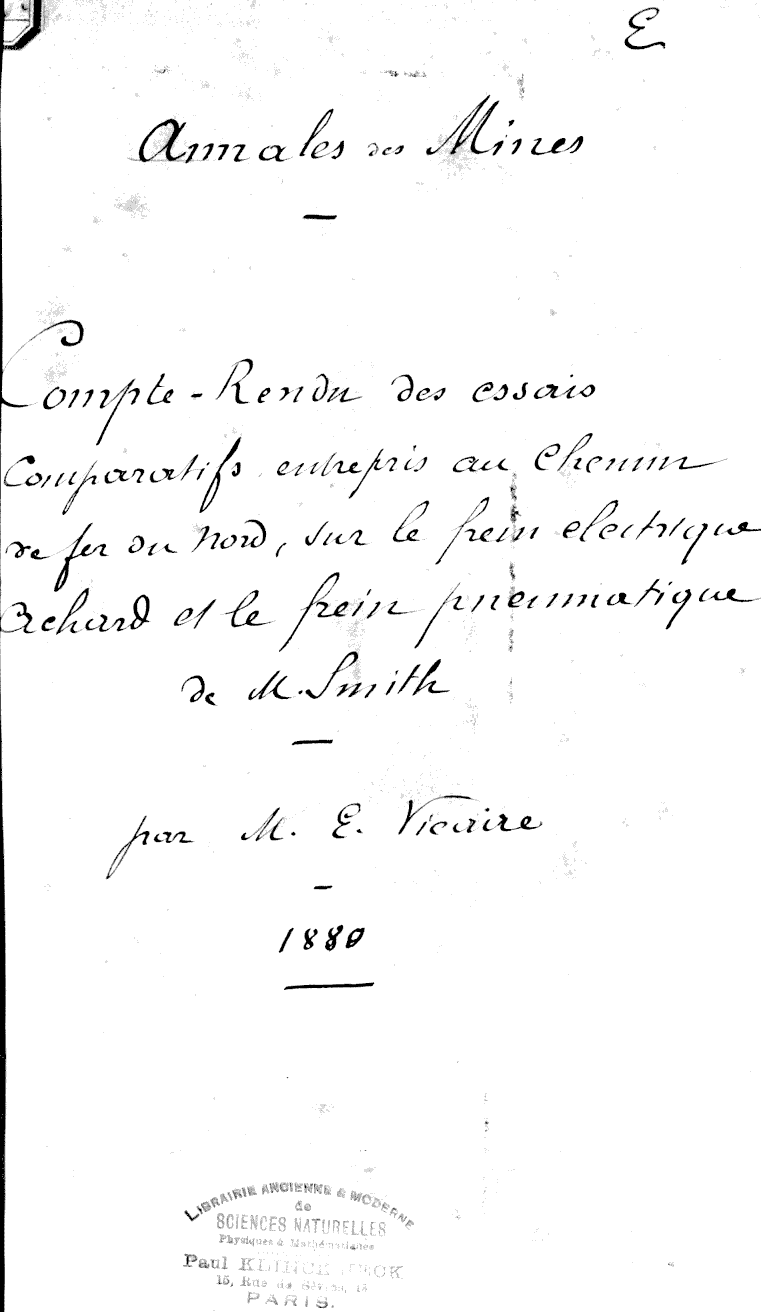 E
Annales des Mines
Compte-Rendu des essais
Comparatifs entrepris au Chemin
de fer du Nord, sur le frein electrique
Achard et le frein pneumatique
de M. Smith
par M. E. Vicaire
1880
LIBRAIRIE ANCIENNE & MODERNE
de
SCIENCES NATURELLES
Physiques & Mathématiques
Paul
15, Rue de
PARIS.